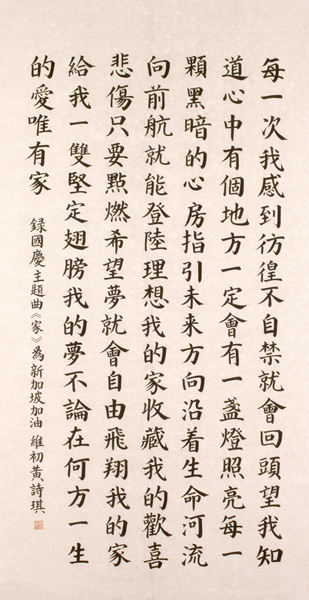 每一次我感到彷徨不自禁就會回頭望我知
道心中有個地方一定會有一盞燈照亮每一
顆黑暗的心房指引未来方向沿着生命河流
向前航就能登陸理想我的家收藏我的歡喜
悲傷只要點燃希望夢就會自由飛翔我的家
給我一雙堅定翅膀我的夢不論在何方一生
的愛唯有家
録國慶主題曲《家》為新加坡加油 維初黃詩琪